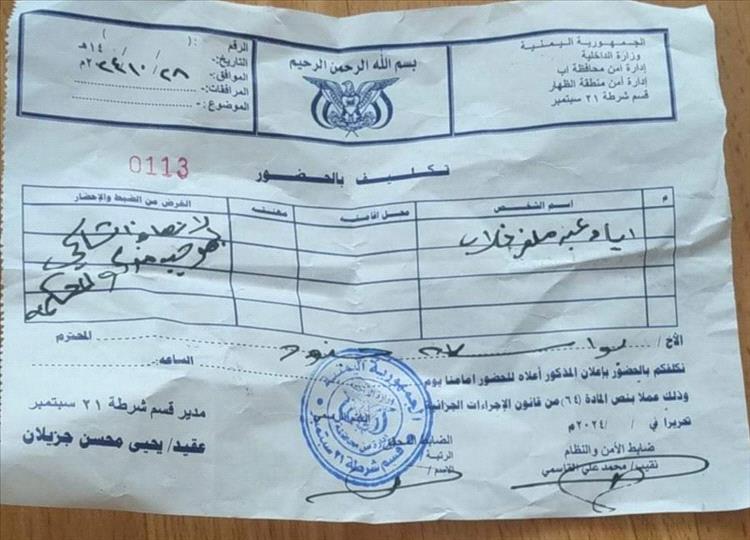 الجمهورية اليمنية
وزارة الداخلية
إدارة أمن محافظة اب
إدارة أمن منطقة الظهار
قسم شرطة ٢١ سبتمبر
بسم الله الرحمن الرحيم
الرقم : ( )
التاريخ: / / ١٤٠هـ
الموافق: ٢٨ / ١٠ / ٢٠٢٤م
المرافقات:
الموضوع:
0113
تكليف بالحضور
م اسم الشخص محل اقامته مهنته الغرض من الضبط والإحضار
اياد عبده
الأخ / المحترم
نكلفكم بالحضور بإعلان المذكور أعلاه للحضور امامنا يوم الساعه:
وذلك عملا بنص المادة (٦٤) من قانون الإجراءات الجزائية
تحريرا في / /٢٠٢٤م
ضابط الأمن والنظام
نقيب/ محمد علي القاسمي
الضابط
الرتبة
الاسم /
مدير قسم شرطة ٢١ سبتمبر
عقيد/ يحيى محسن جزيلان
الجمهورية اليمنية
قسم شرطة ٢١ سبتمبر